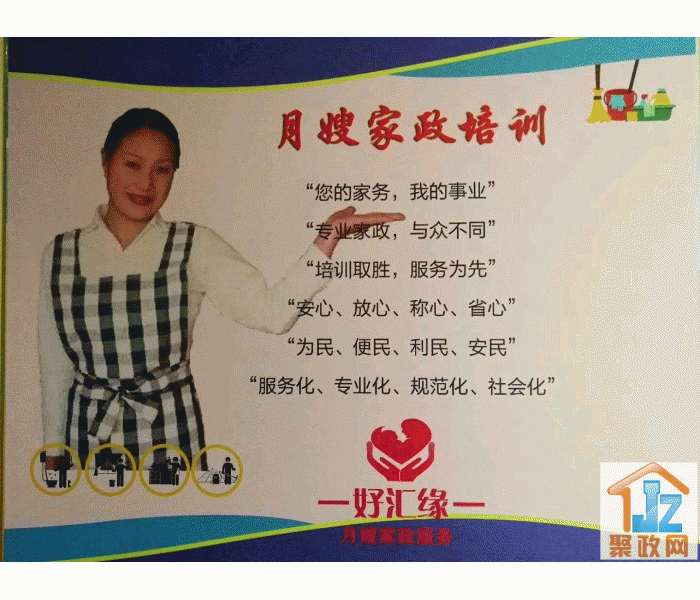 月嫂家政培训
“您的家务，我的事业”
“专业家政，与众不同”
“培训取胜，服务为先”
“安心、放心、称心、省心”
“为民、便民、利民、安民”
“服务化、专业化、规范化、社会化”
好汇缘
月嫂家政服务
JZ
聚政网